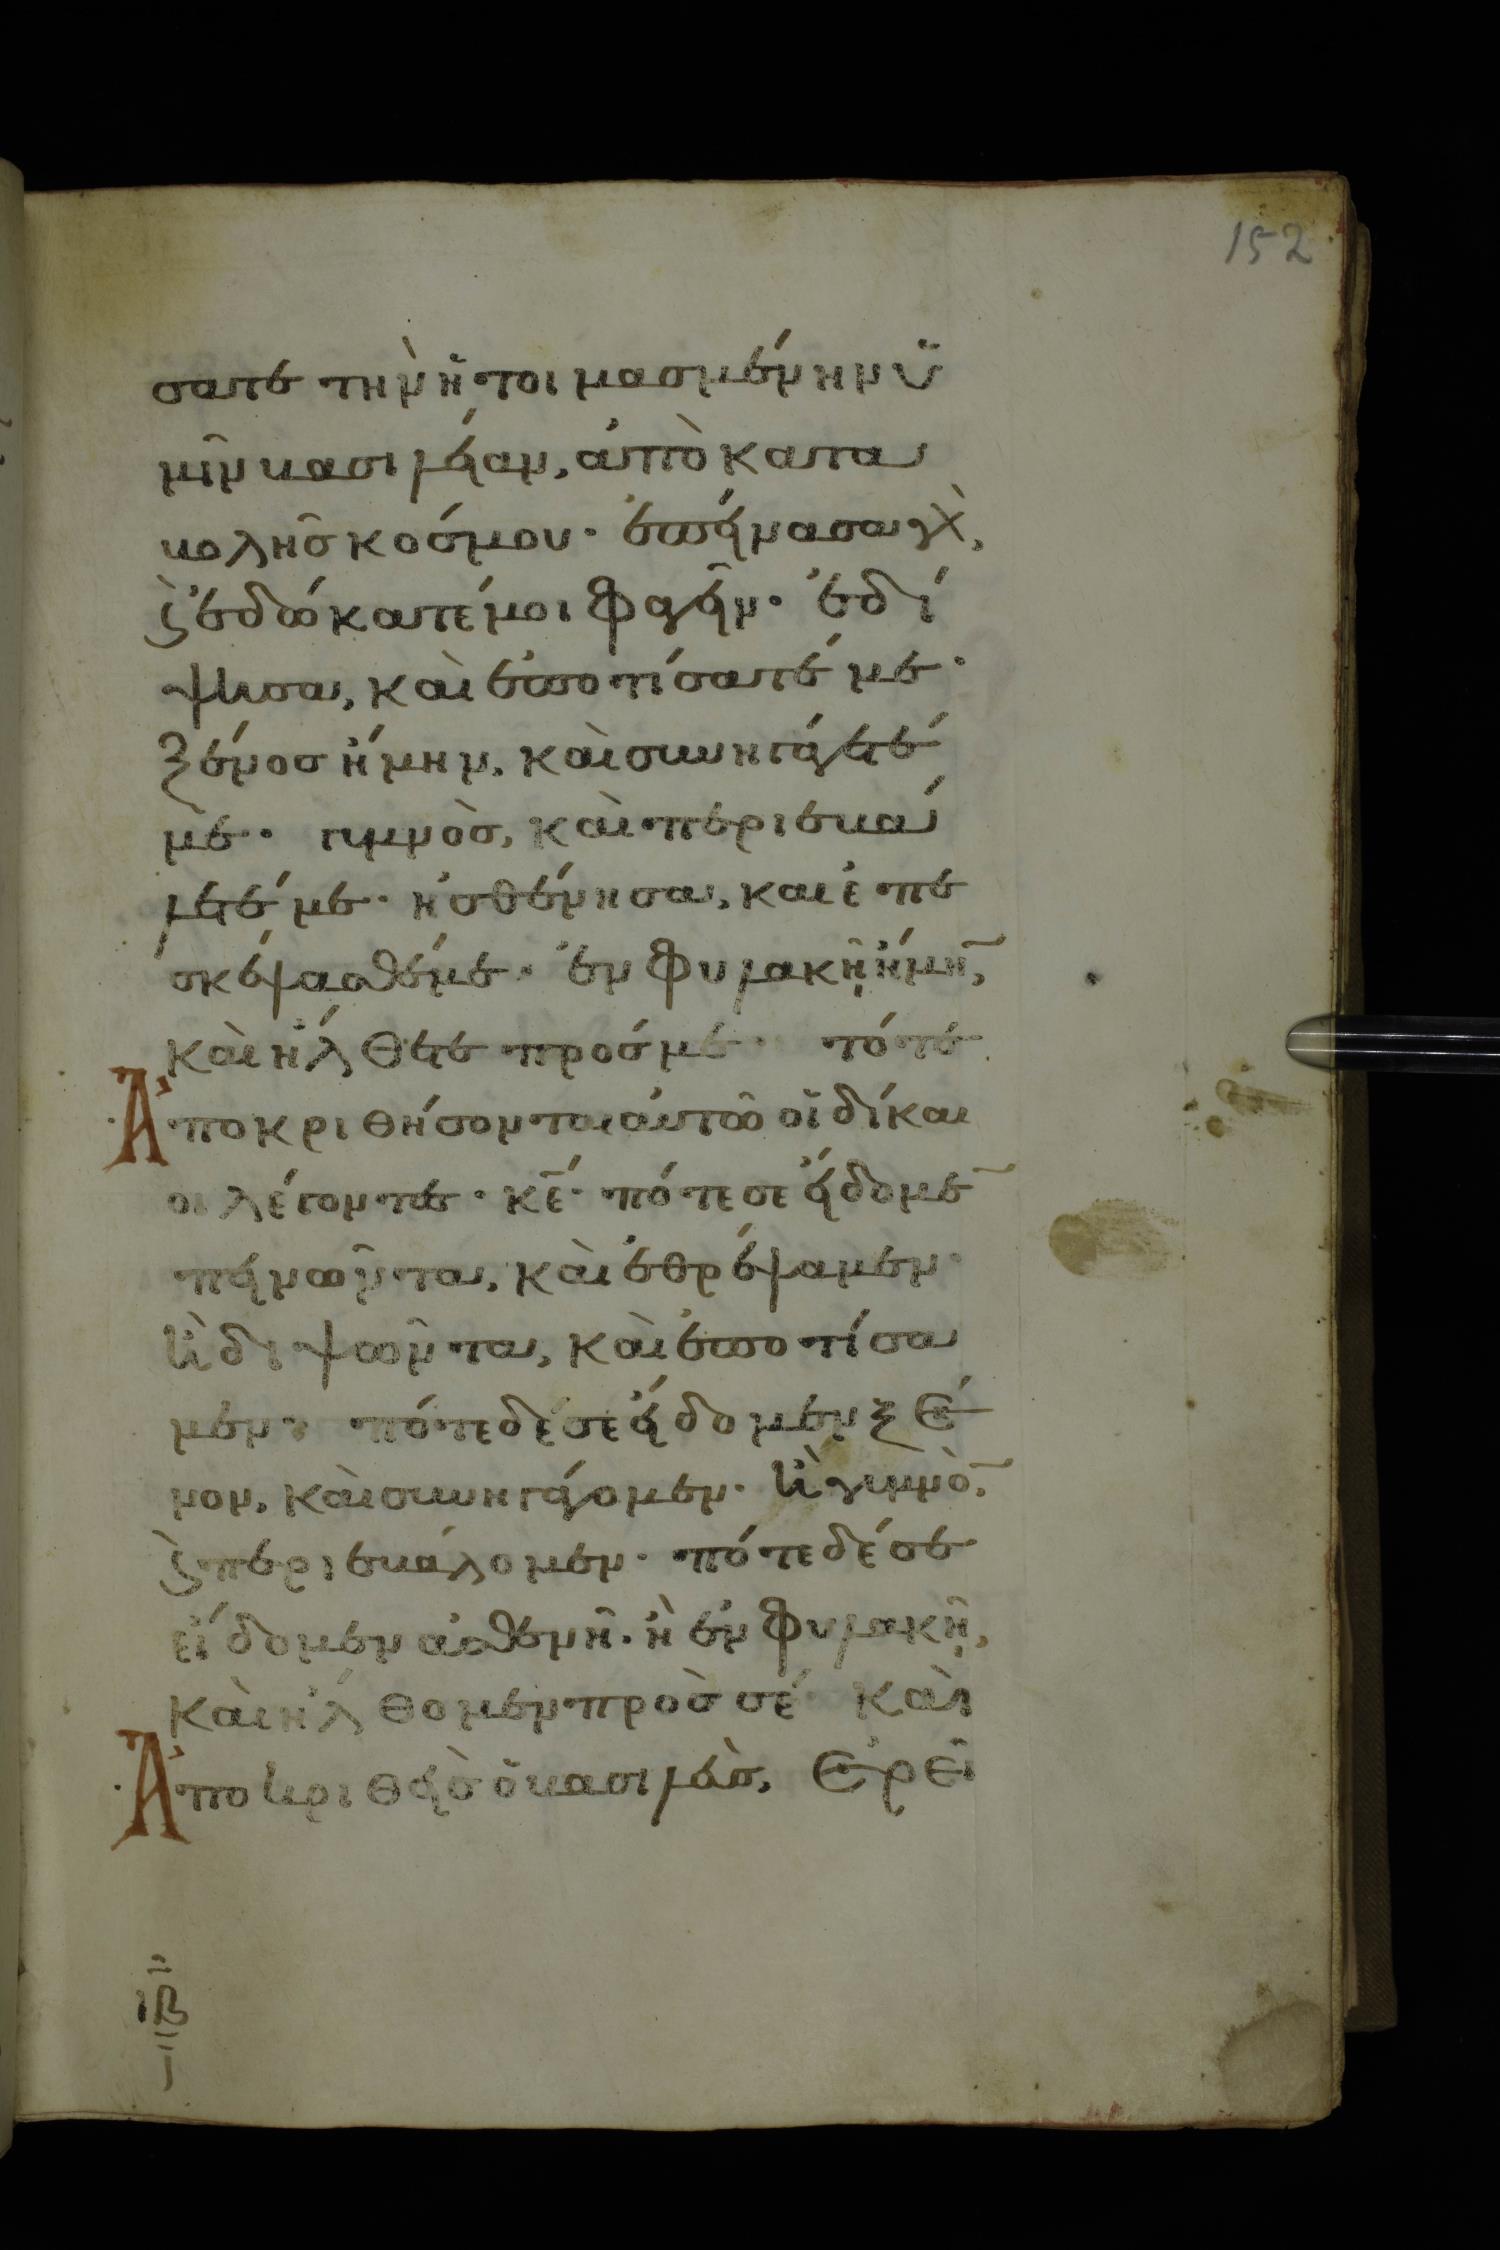 152
σατε τὴν ἡτοιμασμένην ὑ
μῖν βασιλείαν, ἀπὸ κατα
βολῆσ κόσμου· ἐπείνασα γὰρ,
καὶ ἐδώκατέ μοι φαγεῖν· ἐδί
ψησα, καὶ ἐποτίσατέ με·
ξένοσ ἤμην, καὶ συνηγάγετέ
με· γυμνὸσ, καὶ περιεβά
λετέ με· ἠσθένησα, καὶ ἐπε
σκέψασθέ με· ἐν φυλακῆ ἤμη̄,
καὶ ἤλθετε πρόσ με· τότε
Ἀποκριθήσονται αὐτῶ οἱ δίκαι
οι λέγοντεσ· κ̄ε· πότε σε εἴδομε̄
πεινῶντα, καὶ ἐθρέψαμεν·
ἢ διψῶντα, καὶ ἐποτίσα
μεν· πότε δέ σε εἴδομεν ξέ
νον, καὶ συνηγάγομεν· ἢ γυμνὸ̄,
καὶ περιεβάλομεν· πότε δέ σε
εἴδομεν ἀσθενῆ· ἢ ἐν φυλακῆ,
καὶ ἤλθομεν πρὸσ σέ· καὶ
Ἀποκριθεὶσ ὁ βασιλεὺσ, ἐρεῖ
ιβ